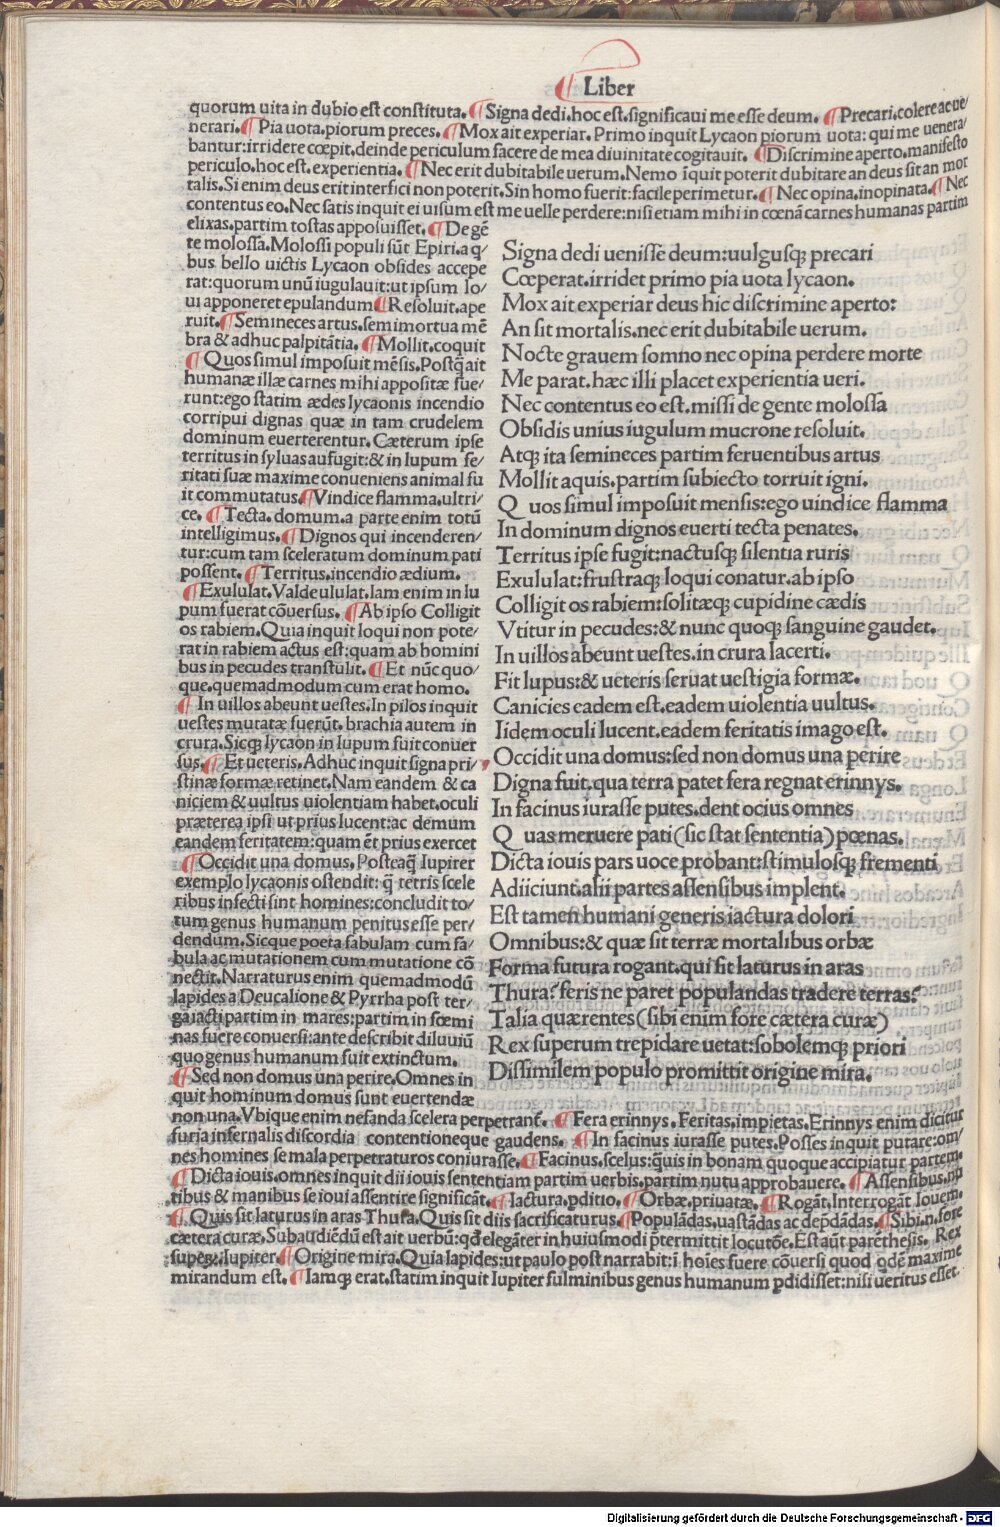 ¶ Liber
quorum uita in dubio est constituta. ¶ Signa dedi. hoc est. significaui me esse deum. ¶ Precari. colere ac ue/
nerari. ¶ Pia uota. piorum preces. ¶ Mox ait experiar. Primo inquit Lycaon piorum uota: qui me uenera/
bantur: irridere cœpit. deinde periculum facere de mea diuinitate cogitauit. ¶ Discrimine aperto. manifesto
periculo. hoc est. experientia. ¶ Nec erit dubitabile uerum. Nemo īquit poterit dubitare an deus sit an mor
talis. Si enim deus erit interfici non poterit. Sin homo fuerit: facile perimetur. ¶ Nec opina. inopinata. ¶ Nec
contentus eo. Nec satis inquit ei uisum est me uelle perdere: nisi etiam mihi in cœnā carnes humanas partim
elixas. partim tostas apposuisset. ¶ De gē
te molossa. Molossi populi sūt Epiri. a q/
bus bello uictis Lycaon obsides accepe
rat: quorum unū iugulauit: ut ipsum Io/
ui apponeret epulandum ¶ Resoluit. ape
ruit. ¶ Semineces artus. semimortua mē
bra & adhuc palpitātia. ¶ Mollit. coquit
¶ Quos simul imposuit mēsis. Postq̄ ait
humanæ illæ carnes mihi appositæ fue/
runt: ego statim ædes lycaonis incendio
corripui dignas quæ in tam crudelem
dominum euerterentur. Cæterum ipse
territus in syluas aufugit: & in lupum fe/
ritati suæ maxime conueniens animal fu
it commutatus. ¶ Vindice flamma. ultri/
ce. ¶ Tecta. domum. a parte enim totū
intelligimus. ¶ Dignos qui incenderen/
tur: cum tam sceleratum dominum pati
possent. ¶ Territus. incendio ædium.
¶ Exululat. Valde ululat. Iam enim in lu
pum fuerat cōuersus. ¶ Ab ipso Colligit
os rabiem. Quia inquit loqui non pote/
rat in rabiem actus est: quam ab homini
bus in pecudes transtulit. ¶ Et nūc quo/
que. quemadmodum cum erat homo.
¶ In uillos abeunt uestes. In pilos inquit
uestes mutatæ fuerūt. brachia autem in
crura. Sicq; lycaon in lupum fuit conuer
sus. ¶ Et ueteris. Adhuc inquit signa pri/
stinæ formæ retinet. Nam eandem & ca
niciem & uultus uiolentiam habet. oculi
præterea ipsi ut prius lucent: ac demum
eandem feritatem: quam ēt prius exercet
¶ Occidit una domus. Posteaq̄ Iupiter
exemplo lycaonis ostendit: q̄ tetris scele
ribus infecti sint homines: concludit to/
tum genus humanum penitus esse per/
dendum. Sicque poeta fabulam cum fa/
bula ac mutationem cum mutatione cō
nectit. Narraturus enim quemadmodū
lapides a Deucalione & Pyrrha post ter/
ga iacti partim in mares: partim in fœmi
nas fuere conuersi: ante describit diluuiū
quo genus humanum fuit extinctum.
¶ Sed non domus una perire. Omnes in
quit hominum domus sunt euertendæ
Signa dedi uenisse deum: uulgusq; precari
Cœperat. irridet primo pia uota lycaon.
Mox ait experiar deus hic discrimine aperto:
An sit mortalis. nec erit dubitabile uerum.
Nocte grauem somno nec opina perdere morte
Me parat. hæc illi placet experientia ueri.
Nec contentus eo est. missi de gente molossa
Obsidis unius iugulum mucrone resoluit.
Atq; ita semineces partim feruentibus artus
Mollit aquis. partim subiecto torruit igni.
Q uos simul imposuit mensis: ego uindice flamma
In dominum dignos euerti tecta penates.
Territus ipse fugit: nactusq; silentia ruris
Exululat: frustraq; loqui conatur. ab ipso
Colligit os rabiem: solitæq; cupidine cædis
Vtitur in pecudes: & nunc quoq; sanguine gaudet.
In uillos abeunt uestes. in crura lacerti.
Fit lupus: & ueteris seruat uestigia formæ.
Canicies eadem est. eadem uiolentia uultus.
Iidem oculi lucent. eadem feritatis imago est.
Occidit una domus: sed non domus una perire
Digna fuit. qua terra patet fera regnat erinnys.
In facinus iurasse putes. dent ocius omnes
Q uas meruere pati (sic stat sententia) pœnas.
Dicta iouis pars uoce probant: stimulosq; frementi
Adiiciunt. alii partes assensibus implent.
Est tamen humani generis iactura dolori
Omnibus: & quæ sit terræ mortalibus orbæ
Forma futura rogant. qui sit laturus in aras
Thura? feris ne paret populandas tradere terras?
Talia quærentes (sibi enim fore cætera curæ)
Rex superum trepidare uetat: sobolemq; priori
Dissimilem populo promittit origine mira.
non una. Vbique enim nefanda scelera perpetrant̄. ¶ Fera erinnys. Feritas. impietas. Erinnys enim dicitur
furia infernalis discordia contentioneque gaudens. ¶ In facinus iurasse putes. Posses inquit putare: om/
nes homines se mala perpetraturos coniurasse. ¶ Facinus. scelus: q̄uis in bonam quoque accipiatur partem.
¶ Dicta iouis. omnes inquit dii iouis sententiam partim uerbis. partim nutu approbauere. ¶ Assensibus. nu
tibus & manibus se ioui assentire significāt. ¶ Iactura. ꝑditio. ¶ Orbæ. priuatæ. ¶ Rogāt. Interrogāt Iouem.
¶ Quis sit laturus in aras Thura. Quis sit diis sacrificaturus. ¶ Populādas. uastādas ac deꝑdādas. ¶ Sibi. n. fore
cætera curæ. Subaudiēdū est ait uerbū: qd̄ elegāter in huiusmodi p̄termittit locutōe. Est aūt parēthesis. Rex
superū. Iupiter. ¶ Origine mira. Quia lapides: ut paulo post narrabit: ī hoīes fuere cōuersi quod qdē maxime
mirandum est. ¶ Iamq; erat. statim inquit Iupiter fulminibus genus humanum ꝑdidisset: nisi ueritus esset.
Digitalisierung gefördert durch die Deutsche Forschungsgemeinschaft - DFG